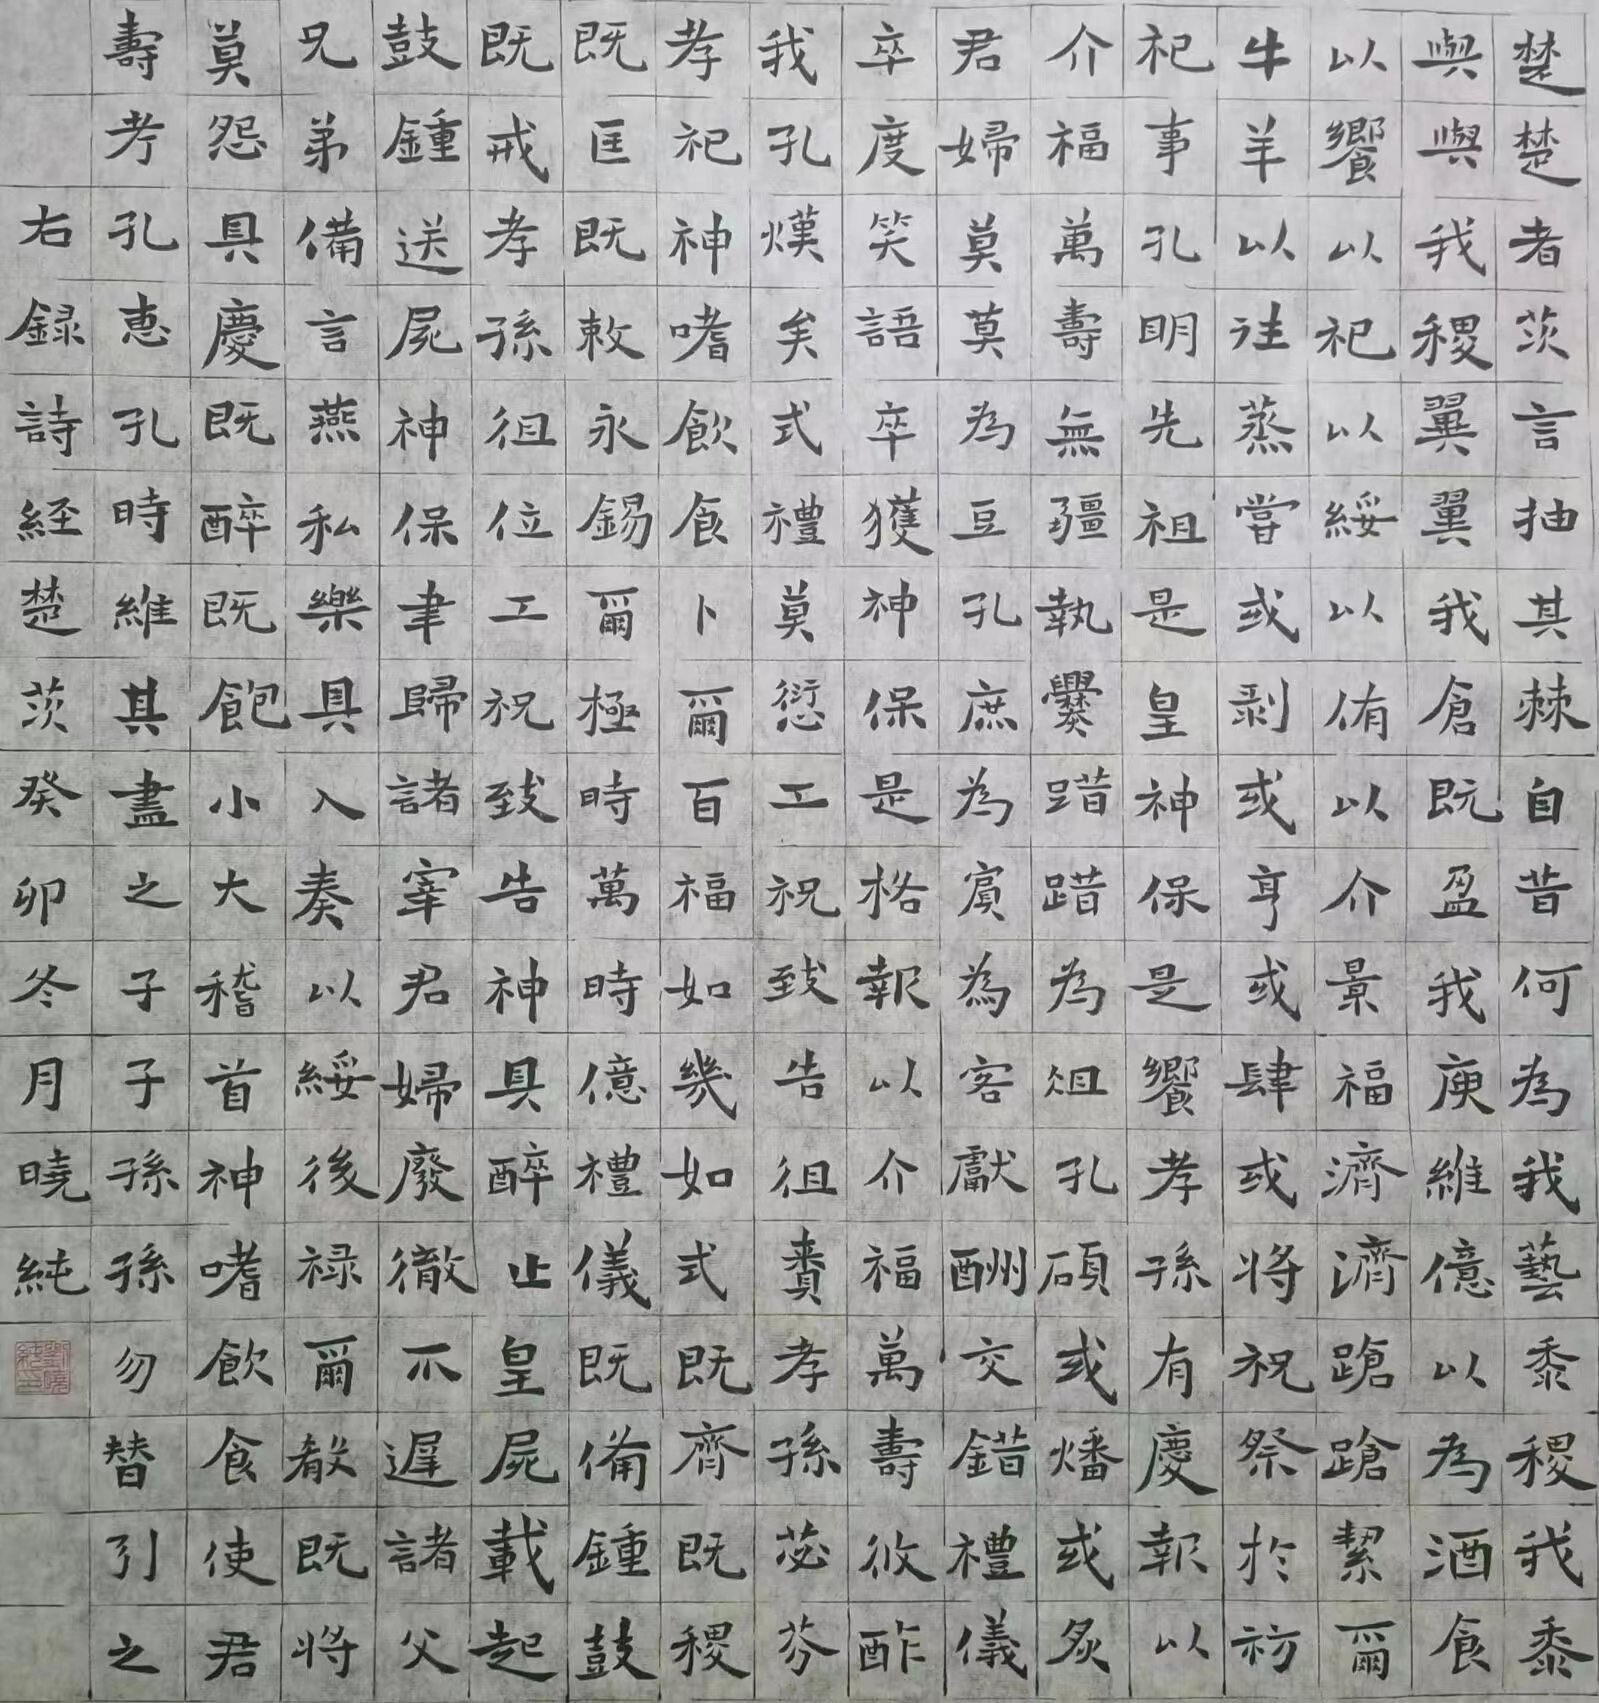 楚楚者茨言抽其棘自昔何為我藝黍稷我黍
與與我稷翼翼我倉既盈我庾維億以為酒食
以饗以祀以綏以侑以介景福濟濟蹌蹌絜爾
牛羊以往蒸嘗或剥或亨或肆或将祝祭於祊
祀事孔明先祖是皇神保是饗孝孫有慶報以
介福萬壽無疆執爨踖踖為俎孔碩或燔或炙
君婦莫莫為豆孔庶為賓為客獻酬交錯禮儀
卒度笑語卒獲神保是格報以介福萬壽攸酢
我孔熯矣式禮莫愆工祝致告徂賚孝孫苾芬
孝祀神嗜飲食卜爾百福如幾如式既齊既稷
既匡既敕永錫爾極時萬時億禮儀既備鍾鼓
既戒孝孫徂位工祝致告神具醉止皇屍載起
鼓鍾送屍神保聿歸諸宰君婦廢徹不遲諸父
兄弟備言燕私樂具入奏以綏後禄爾殽既将
莫怨具慶既醉既飽小大稽首神嗜飲食使君
壽考孔惠孔時維其盡之子子孫孫勿替引之
右録詩経楚茨癸卯冬月曉純
劉曉純印